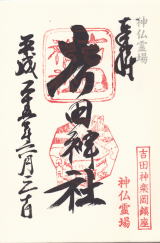 奉拝
神仏霊場
吉田神社
平成二十五年二月二日
吉田神楽岡鎮座
神仏霊場